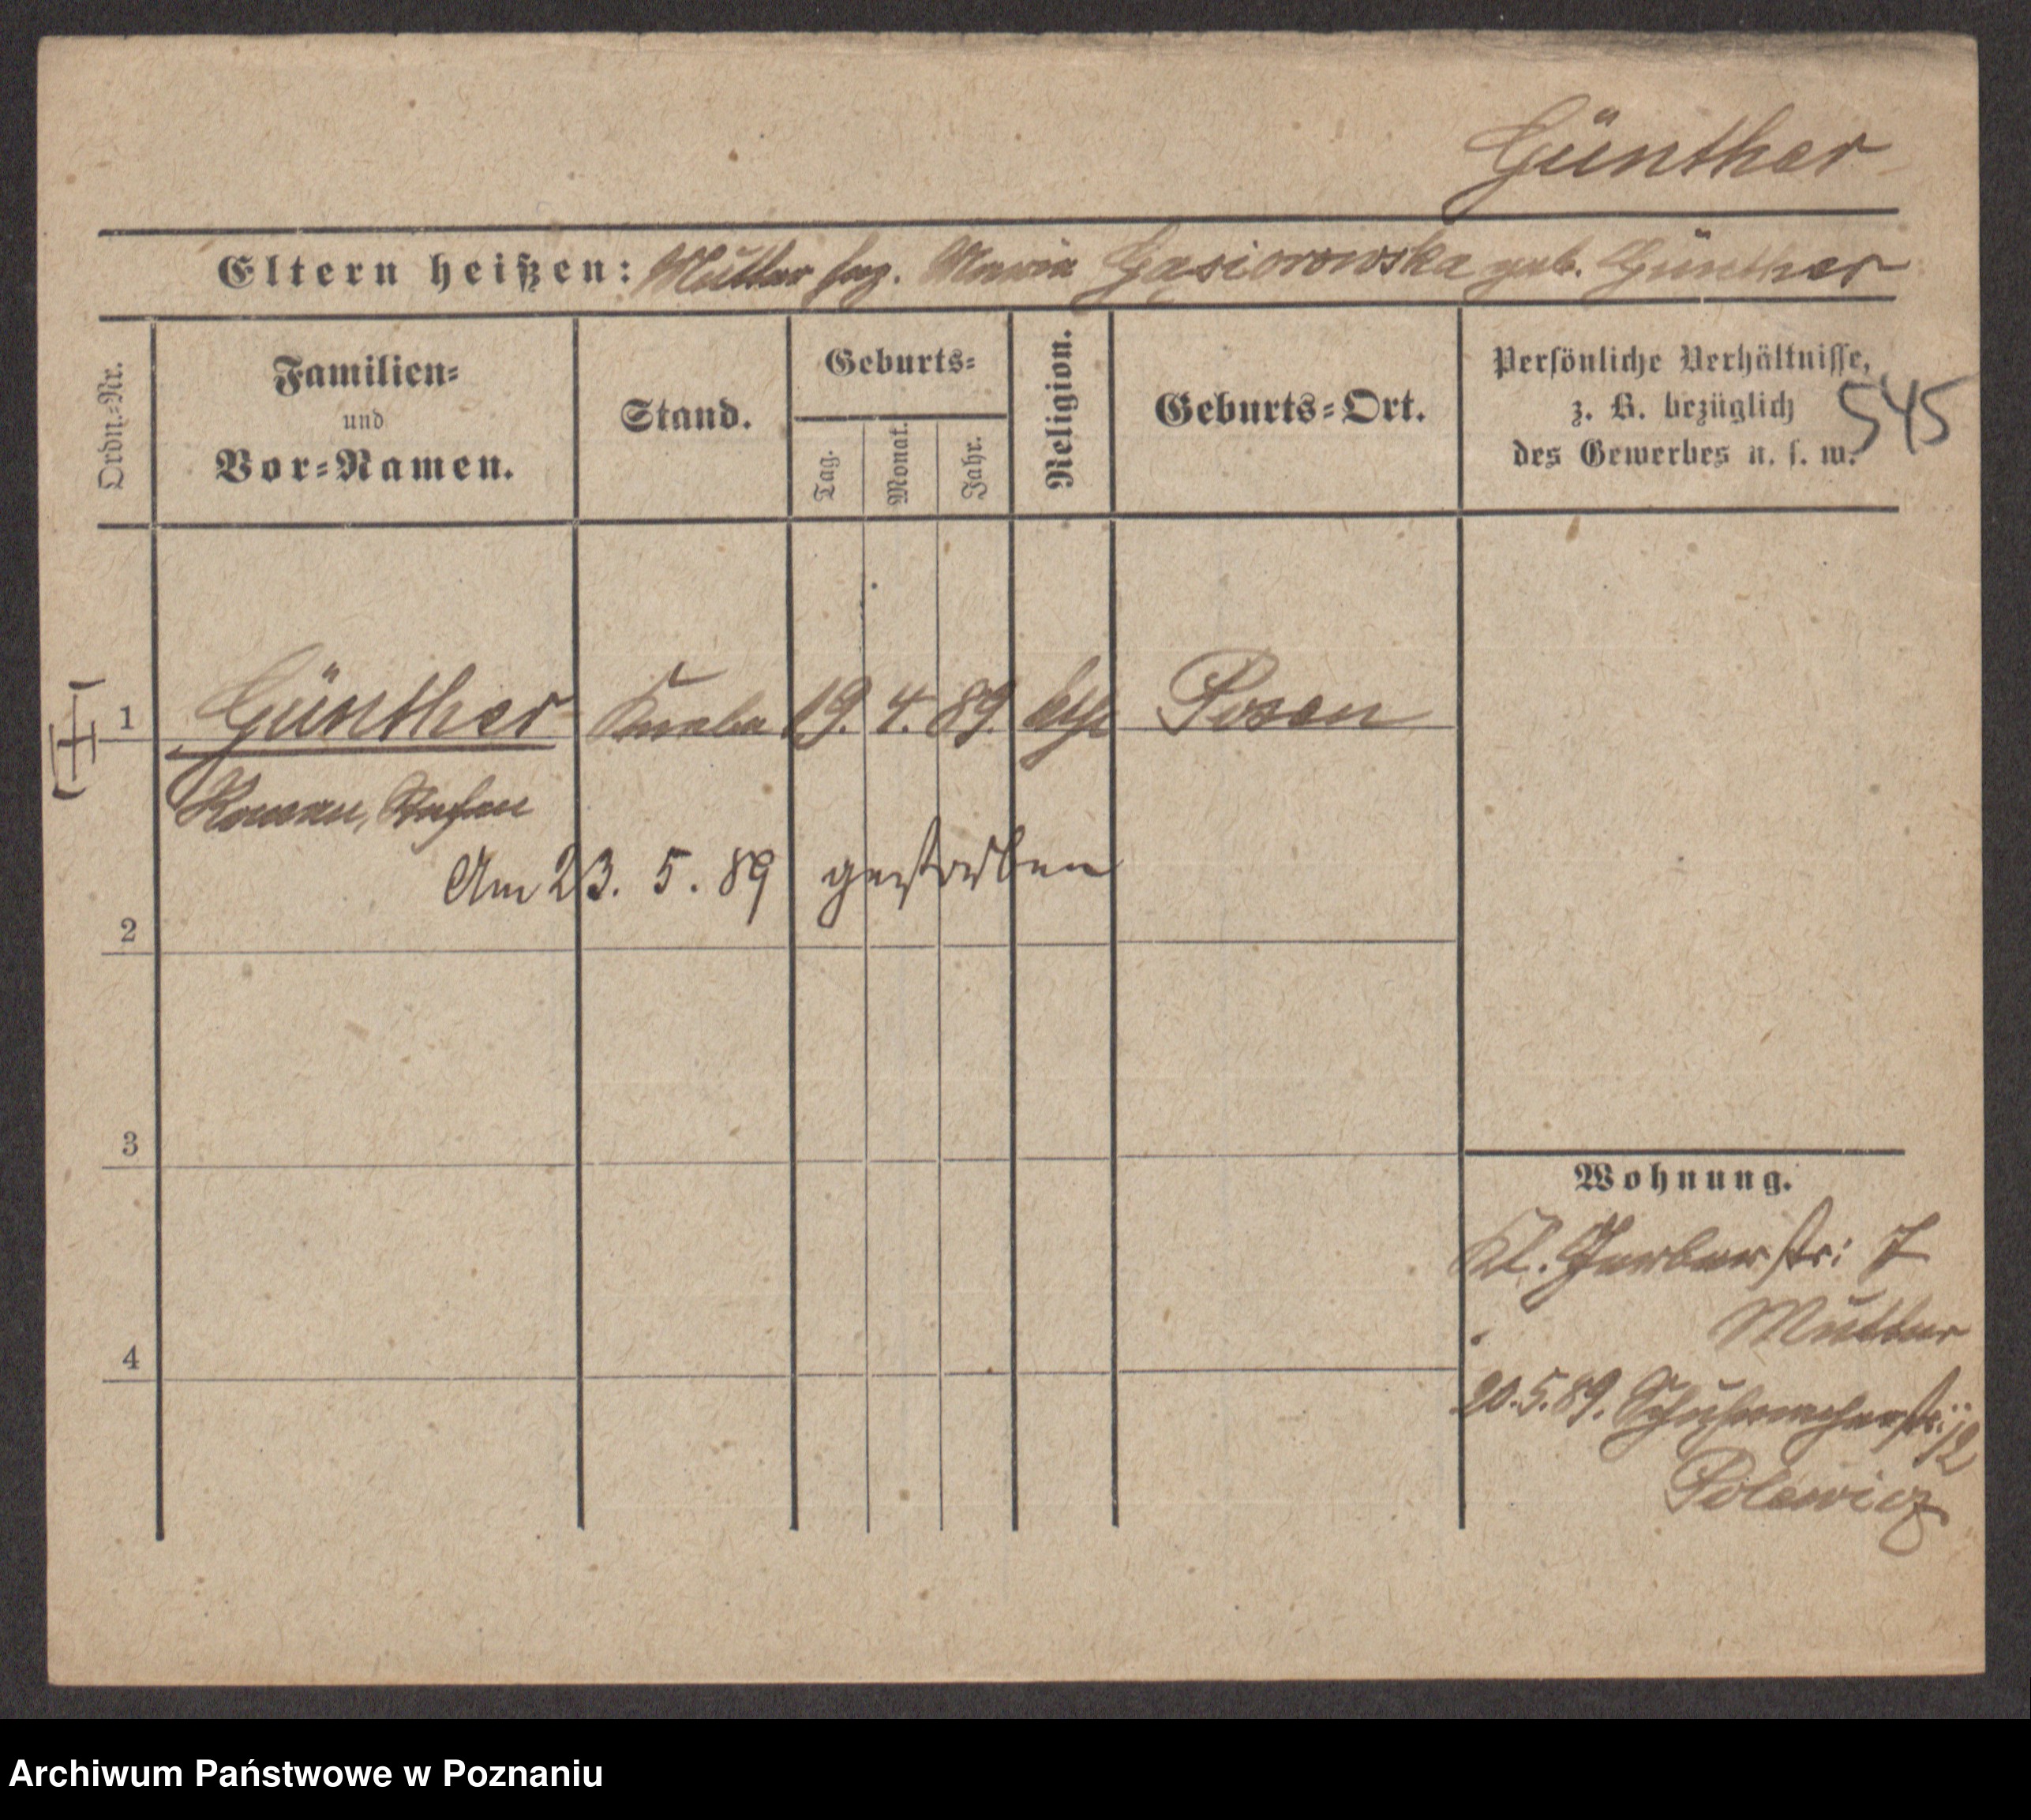 Günther
Eltern heißen: Mutter sep. Maria Gąsiorowska geb. Günther
Ordn.=Nr.
Familien=
und
Vor=Namen.
Stand.
Geburts=
Tag.
Monat.
Jahr.
Religion.
Geburts=Ort.
Persönliche Verhältnisse,
z. B. bezüglich
des Gewerbes u. s. w.
545
1 Günther Knabe 19. 4. 89. Posen
Roman, Stefan
Am 23. 5. 89 gestorben
2
3
4
Wohnung.
Kl. Gerberstr: 7
Mutter
20.5.89. Schuhmacherstr: 12
Polewicz
Archiwum Państwowe w Poznaniu